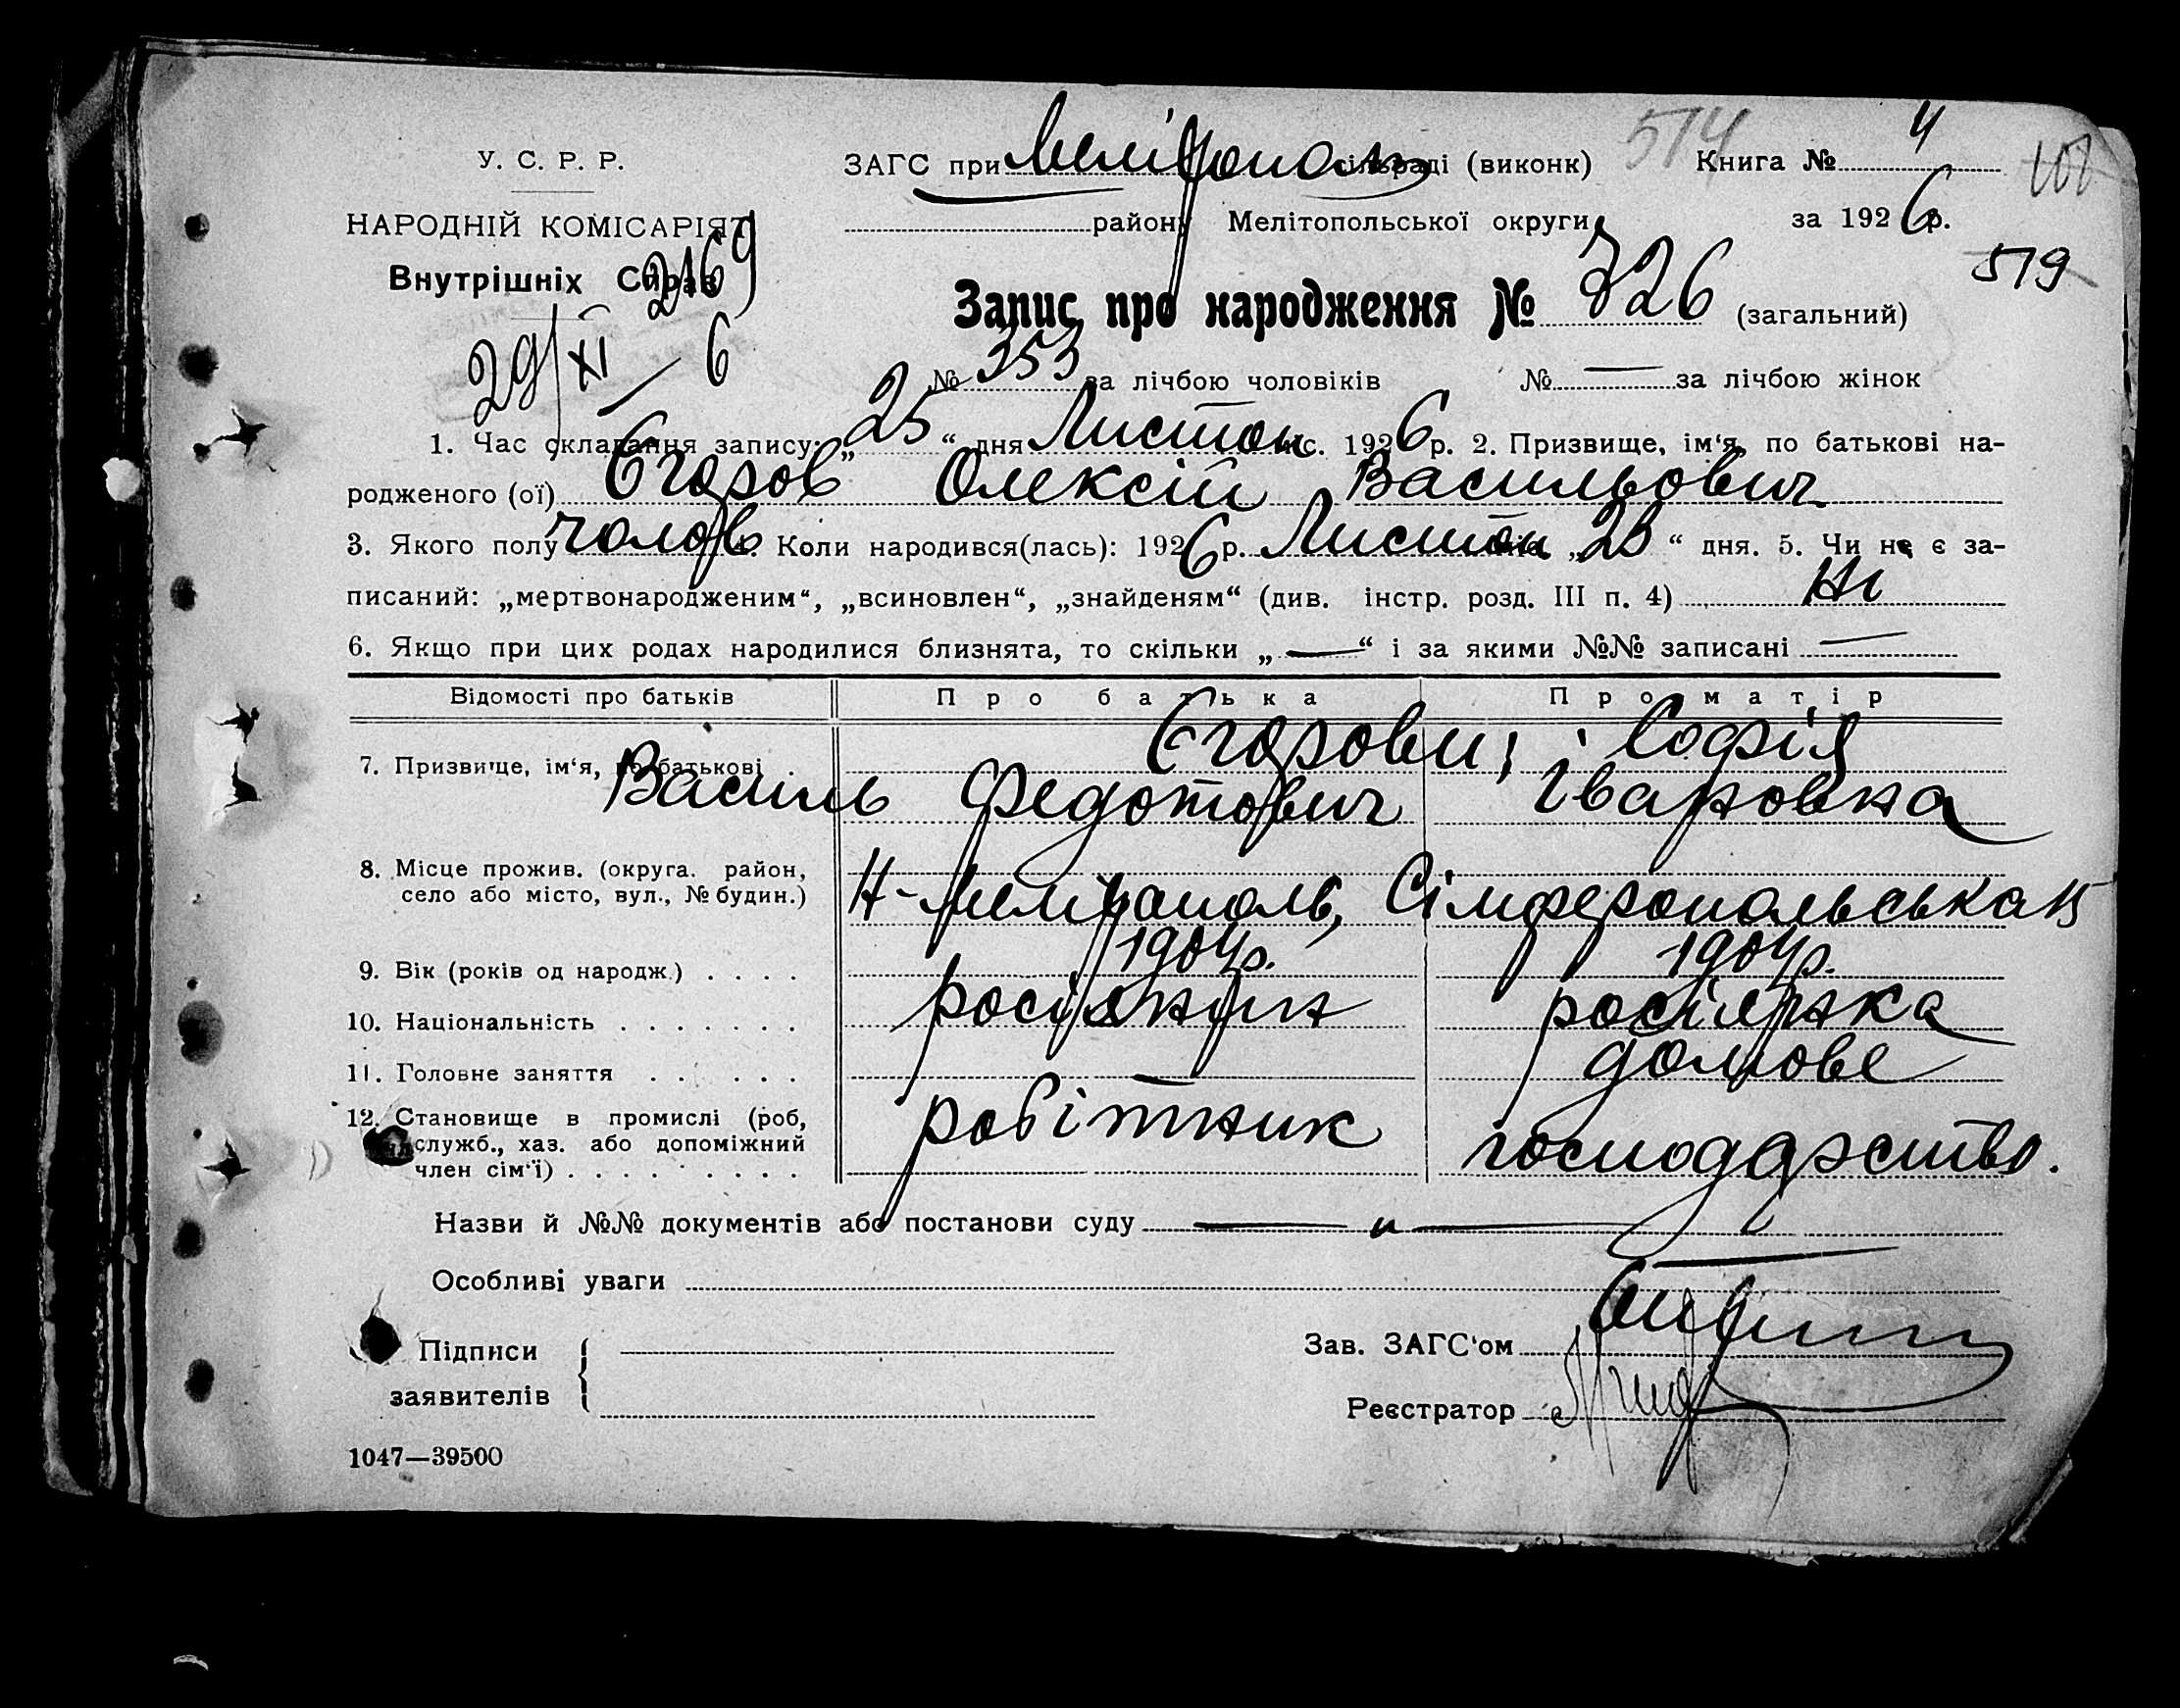 574
У. С. Р. Р. ЗАГС при Мелітополь сільраді (виконк) Книга № 4
НАРОДНІЙ КОМІСАРІЯТ району Мелітопольської округи за 1926 р.
Внутрішніх Справ 2169 519
Запис про народження № 726 (загальний)
29/XI – 6
№ 353 за лічбою чоловіків № — за лічбою жінок
1. Час складання запису: „25“ дня Листоп міс. 1926 р. 2. Призвище, ім‘я, по батькові на-
родженого (ої) Єгоров Олексій Васильович
3. Якого полу чолов 4. Коли народився(лась): 1926 р. Листоп „ “ дня. 5. Чи не є за-
писаний: „мертвонародженим“, „всиновлен“, „знайденям“ (див. інстр. розд. III п. 4) Ні
6. Якщо при цих родах народилися близнята, то скільки „—“ і за якими №№ записані —
Відомості про батьків Про батька Про матір
7. Призвище, ім‘я, по батькові . Єгорови, Софія
Василь Федотович Івановна
8. Місце прожив. (округа. район,
село або місто, вул., № будин.) Н-Мелітополь, Сімферопольська 15
9. Вік (років од народж.) . . . . 1904р. 1904р.
10. Національність . . . . . . . росіянин росіянка
11. Головне заняття . . . . . . домове
12. Становище в промислі (роб, робітник
служб., хаз. або допоміжний господарство.
член сім‘ї) . . . . . . . . .
Назви й №№ документів або постанови суду — „ —
Особливі уваги
Підписи
заявителів
Зав. ЗАГС‘ом
Реєстратор
1047—39500